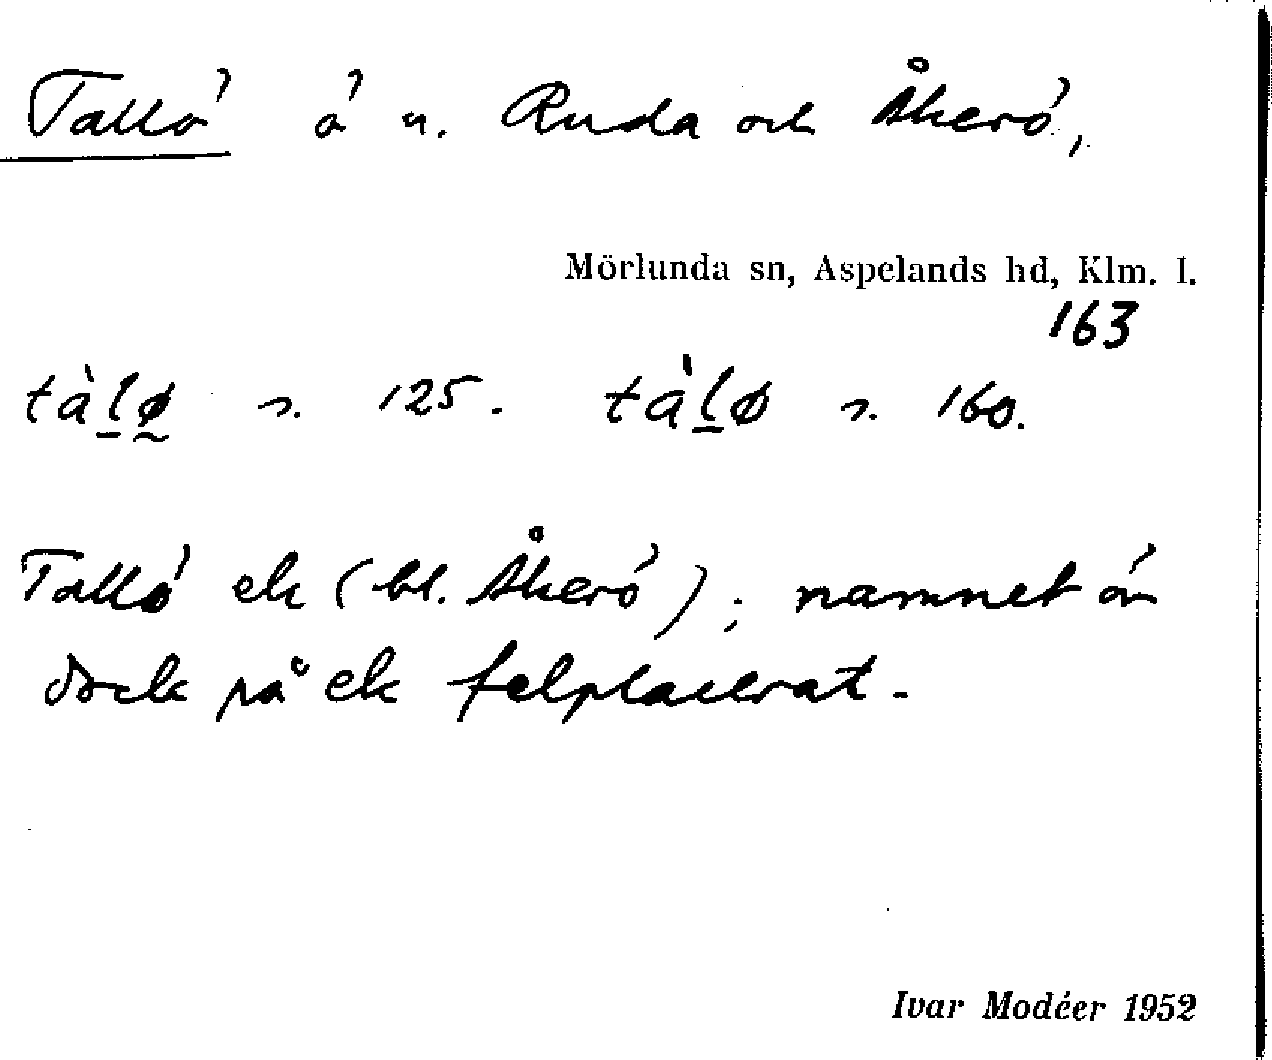 Tallö ö u. Ruda och Åkerö,
Mörlunda sn, Aspelands hd, Klm. l.
163
tàlø s. 125. tàlø s. 160.
Tallö ek (bl. Åkerö); namnet är
dock på ek felplacerat.
Ivar Modéer 1952